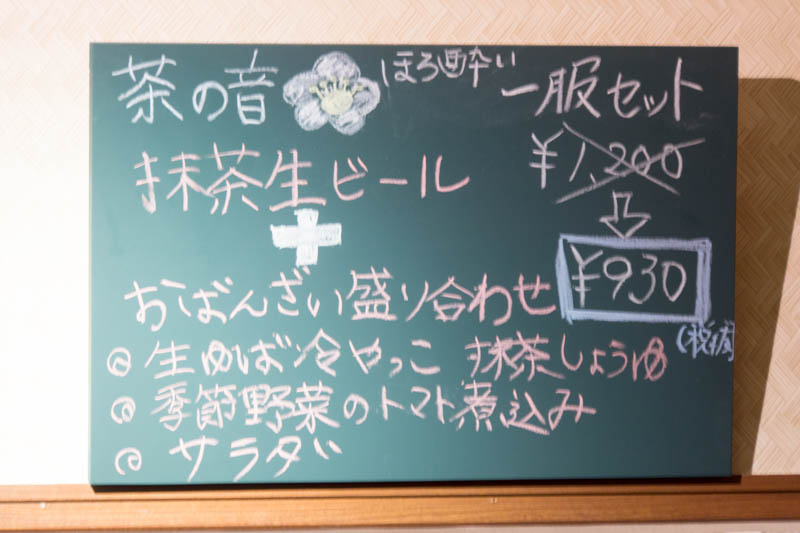 茶の音 ほろ酔い 一服セット
抹茶生ビール ¥1,200
¥930
おばんざい盛り合わせ
生ゆば冷やっこ 抹茶しょうゆ
季節野菜のトマト煮込み
サラダ